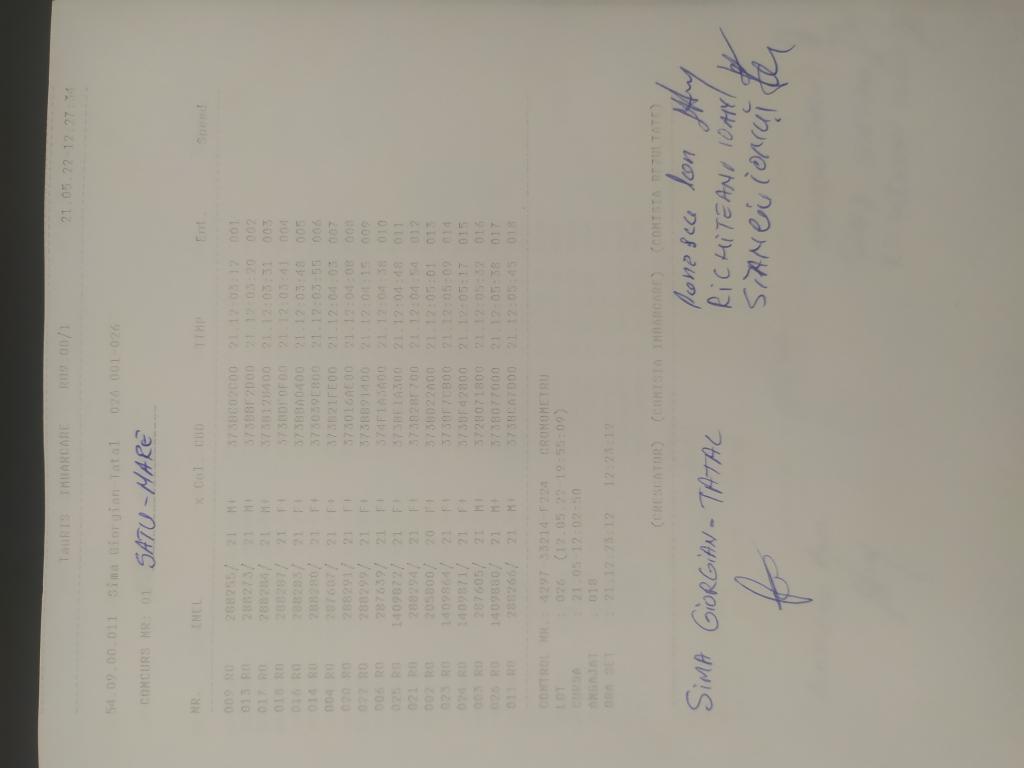 TauRIS IMBARCARE ROM 00/1 21.05.22 12.27.34
54.09.00.011 Sima Giorgian Tatal 026 001-026
CONCURS NR: 01 SATU-MARE
NR. INEL x Cul. COD TIMP Ent. Speed
009 RO 288285/ 21 M+ 21.12:03:17 001
013 RO 288273/ 21 M+ 21.12:03:29 002
017 RO 288284/ 21 M+ 21.12:03:31 003
018 RO 288287/ 21 F+ 21.12:03:41 004
016 RO 288283/ 21 F+ 21.12:03:48 005
014 RO 288280/ 21 F+ 21.12:03:55 006
004 RO 287607/ 21 F+ 21.12:04:03 007
020 RO 288291/ 21 F+ 21.12:04:08 008
022 RO 288299/ 21 F+ 21.12:04:15 009
006 RO 287639/ 21 F+ 21.12:04:38 010
025 RO 1409872/ 21 F+ 21.12:04:48 011
021 RO 288294/ 21 F+ 21.12:04:54 012
002 RO 205800/ 20 F+ 21.12:05:01 013
023 RO 1409864/ 21 F+ 21.12:05:09 014
024 RO 1409871/ 21 F+ 21.12:05:17 015
003 RO 287605/ 21 M+ 21.12:05:32 016
026 RO 1409880/ 21 M+ 21.12:05:38 017
011 RO 288266/ 21 M+ 21.12:05:45 018
CONTROL NR.: 4297 CRONOMETRU
LOT : 026 (17.05.22-19:55:09)
CURSA : 21.05-12:02:50
ANGAJAT : 018
ORA SET : 21.12:23:12 12:23:12
(CRESCATOR) (COMISIA IMBARCARE) (COMISIA REZULTATE)
SIMA GIORGIAN-TATAL Ionescu Ion
RICHITEANU IOAN
STANCIU IONUȚ